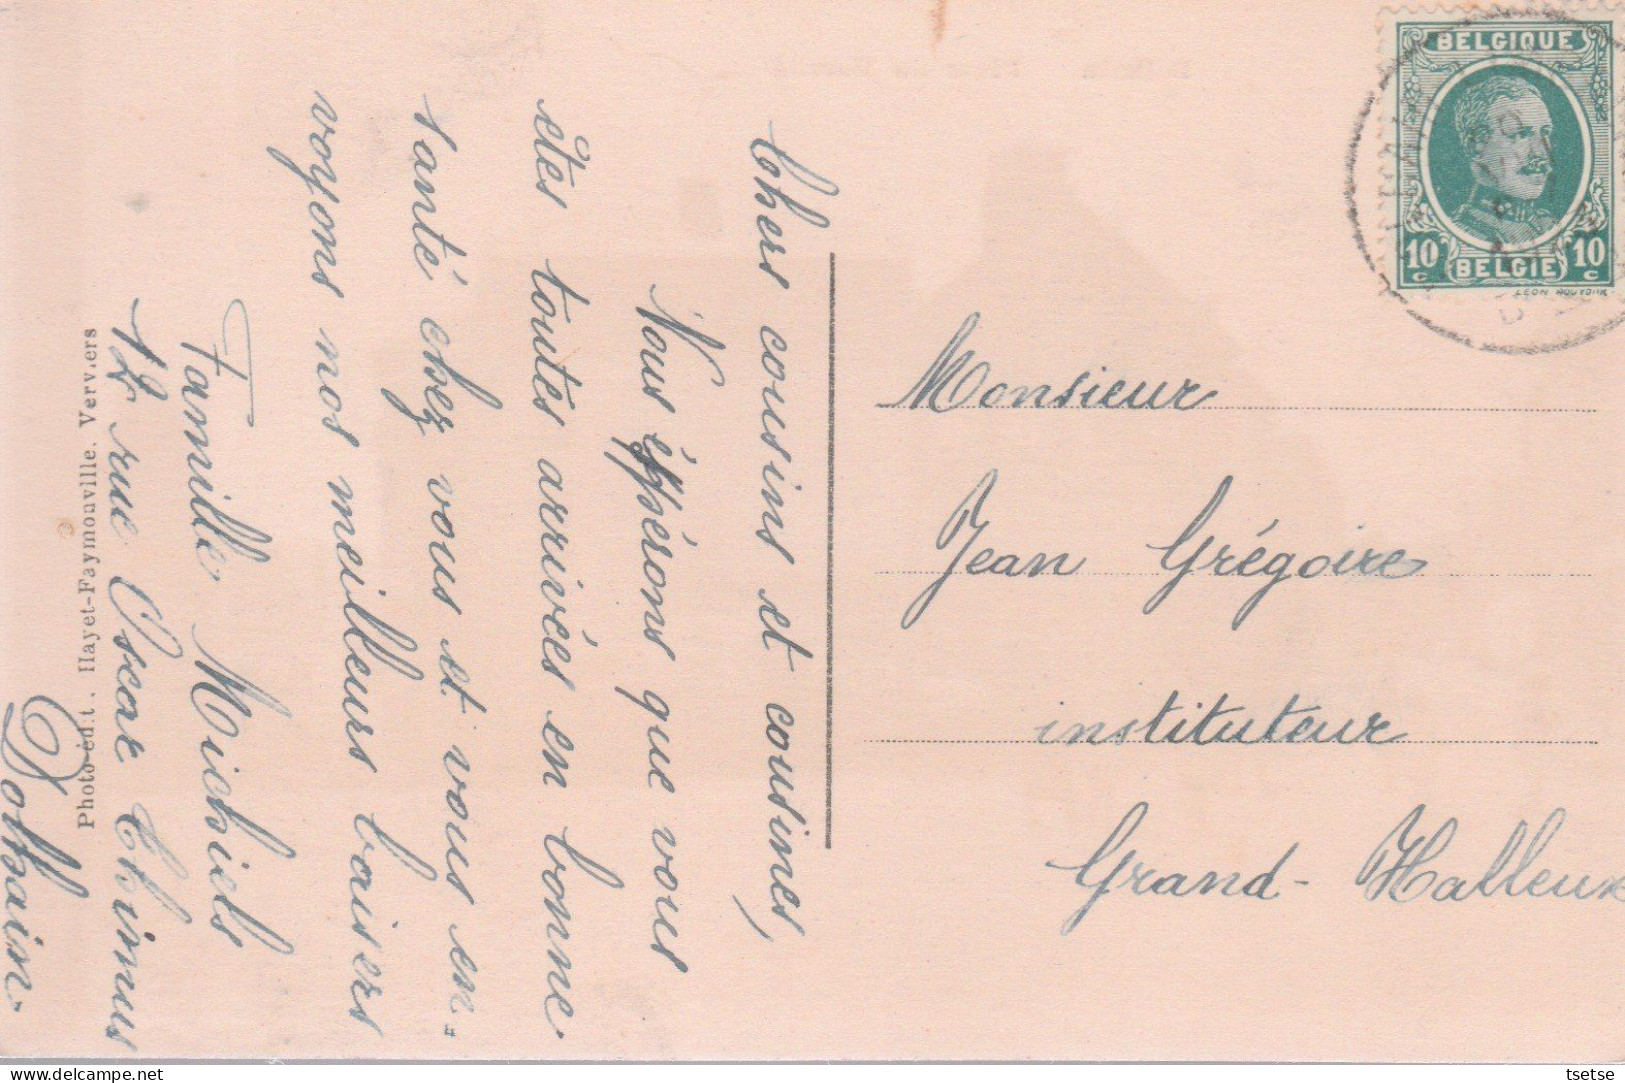 Chers cousins et cousines,
Nous éspérons que vous
êtes toutes arrivées en bonne
santé chez vous et vous en-
voyons nos meilleurs baisers
Famille Michiels
12 rue Oscar Thimus
Dolhain.
Photo-édit. Hayet-Faymonville. Verviers
BELGIQUE
10 c
10 c
BELGIE
Monsieur
Jean Grégoire
instituteur
Grand-Halleux
tsetse